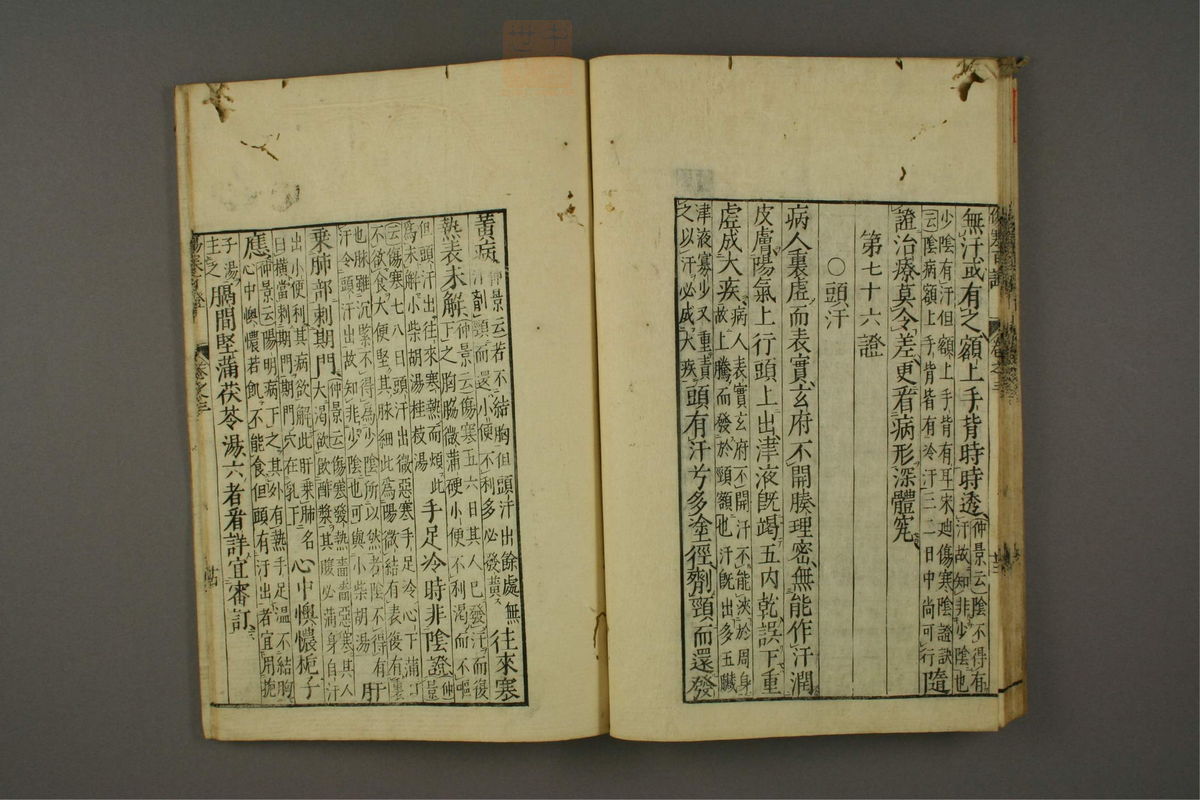 無汗或有之額上手背時時透仲景云陰不得有汗故知非少陰也
少陰有汗但額上手背有耳宋廸傷寒陰證訣云陰病額上手背皆有冷汗三二日中尚可行隨
證治療莫令差更看病形深體究
第七十六證
○頭汗
病人裏虛而表實玄府不開腠理密無能作汗潤
皮膚陽氣上行頭上出津液旣竭五内乾誤下重
虛成大疾病人表實玄府不開汗不能浹於周身故上騰而發於頸額也汗旣出多五臟
津液寡少又重責之以汗必成大疾頭有汗兮多塗徑劑頸而還發
黃病仲景云若不結胸但頭汗出餘處無汗劑頸而還小便不利多必發黃往來寒
熱表未解仲景云傷寒五六日其人已發汗而復下之胸脇微滿硬小便不利渴而不嘔
但頭汗出往來寒熱而煩此爲未解小柴胡湯桂枝湯手足冷時非陰證仲景
云傷寒七八日頭汗出微惡寒手足冷心下滿口不欲食大便堅其脉細此爲陽微結有表後有裏
也脉雖沉緊不得爲少陰所以然者陰不得有汗今頭汗出故知非少陰也可與小柴胡湯肝
乘肺部刺期門仲景云傷寒發熱嗇嗇惡寒其人大渴欲飲酢漿其腹必滿身自汗
出小便利其病欲解此肝乘肺名曰橫當刺期門期門穴在乳下心中懊憹梔子
應仲景云陽明病下之其外有熱手足溫不結胸心中懊憹若飢不能食但頭有汗出者宜用梔
子湯主之膈間堅滿茯苓湯六者看詳宜審訂